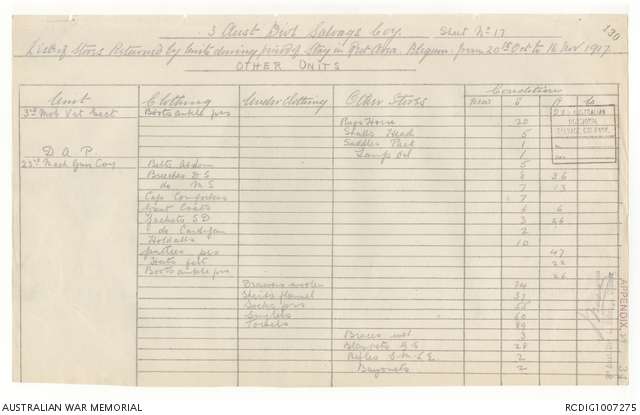 3 Aust Divl Salvage Coy. Sheet No 17
130
List of Stores Returned by Units during period of stay in Area. Belgium. from 20th Oct to 16 Nov 1917
OTHER UNITS
Condition
Unit Clothing Underclothing Other Stores New S R Us
3rd Mob Vet Sect Boots ankle prs
Rugs Horse 20
Stalls Head 5
Saddles Pack 1
D A P Lamps Oil 1
23rd Mach Gun Coy Belts Abdom 5
Breeches D S 8 36
do M S 7 13
Caps Comforters 7
Great Coats 6 6
Jackets S D 3 56
do Cardigan 2
Holdalls 10
puttees prs 47
Hats felt 22
Boots ankle prs 26
Drawers woolen 74
Shirts flannel 37
Socks prs 55
Singlets 60
Towels 89
Braces 3
Blankets G S 28
Rifles S.M.L.E. 2
Bayonets 2
APPENDIX
AUSTRALIAN WAR MEMORIAL RCDIG1007275